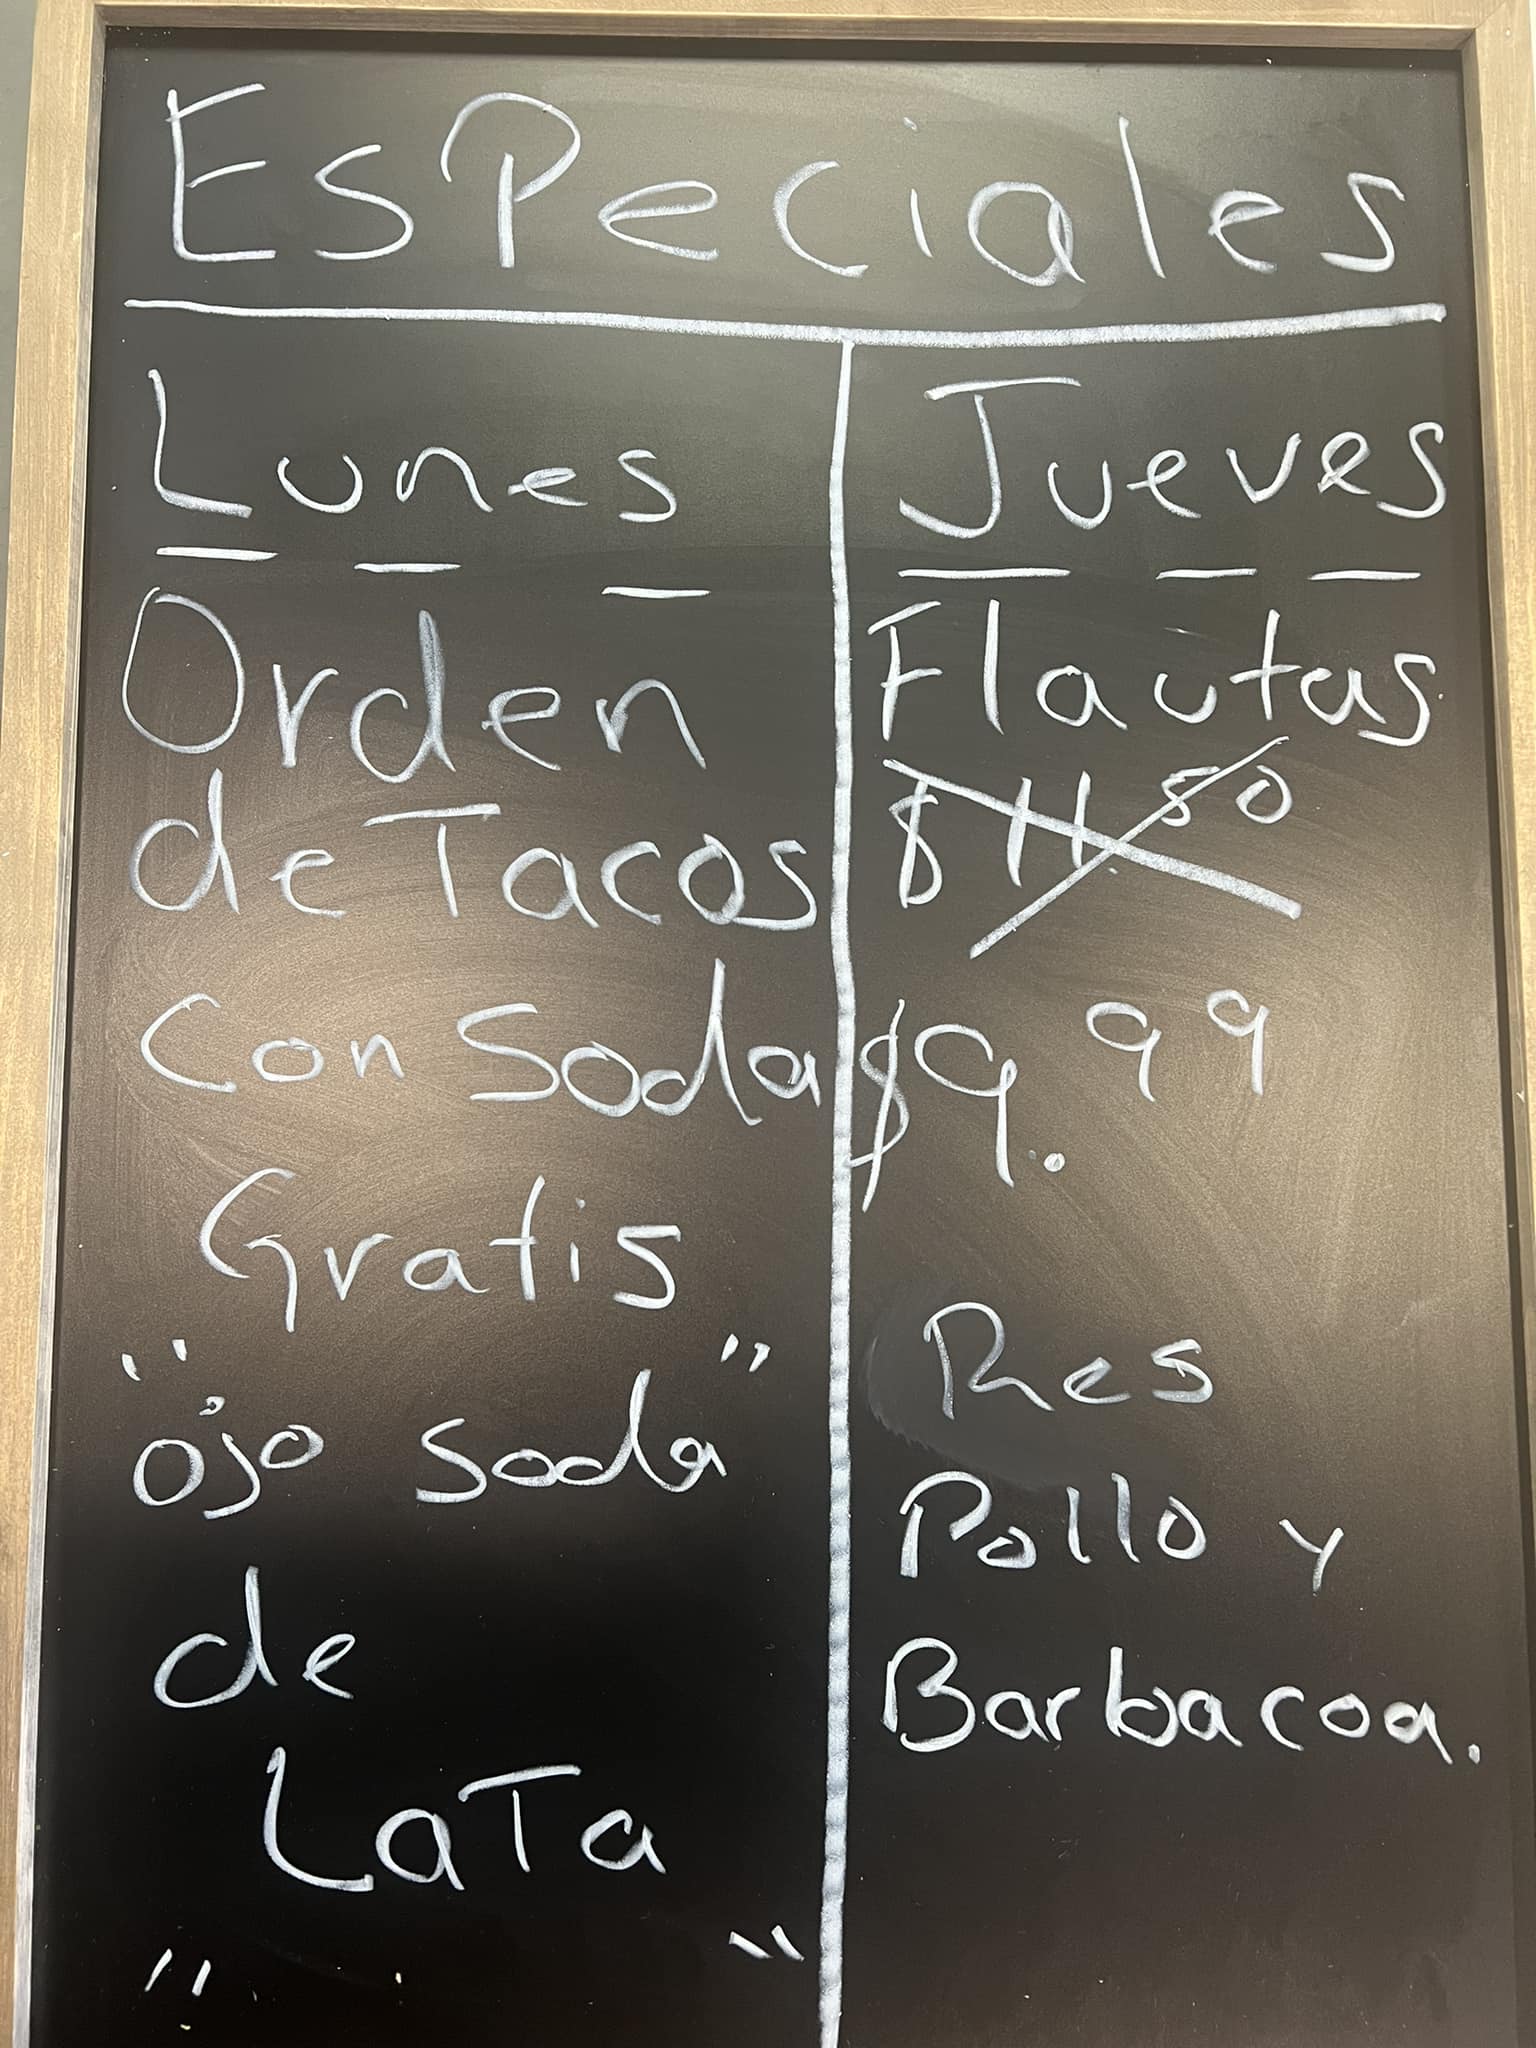 EsPeciales
Lunes
Orden
de Tacos
Con Soda
Gratis
"ojo soda"
de
LaTa
" "
Jueves
Flautas
$11.50
$9.99
Res
Pollo y
Barbacoa.